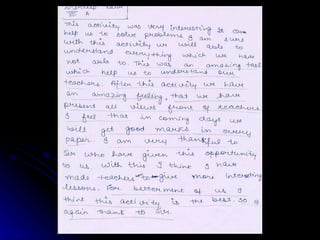 III A
This activity was very interesting It can
help us to solve problems I am sure
with this activity we will able to
understand everything which we have
not able to. This was an amazing task
which help us to understand our
teachers. After this activity we have
an amazing feeling, that we have
present all views front of teachers
I feel that in coming days we
will get good marks in every
paper I am very thankful to
Sir who have given this opportunity
to us. With this I think I have
made teachers to give more interesting
lessons. For betterment of us I
think this activity is the best. So
again thank to Sir.